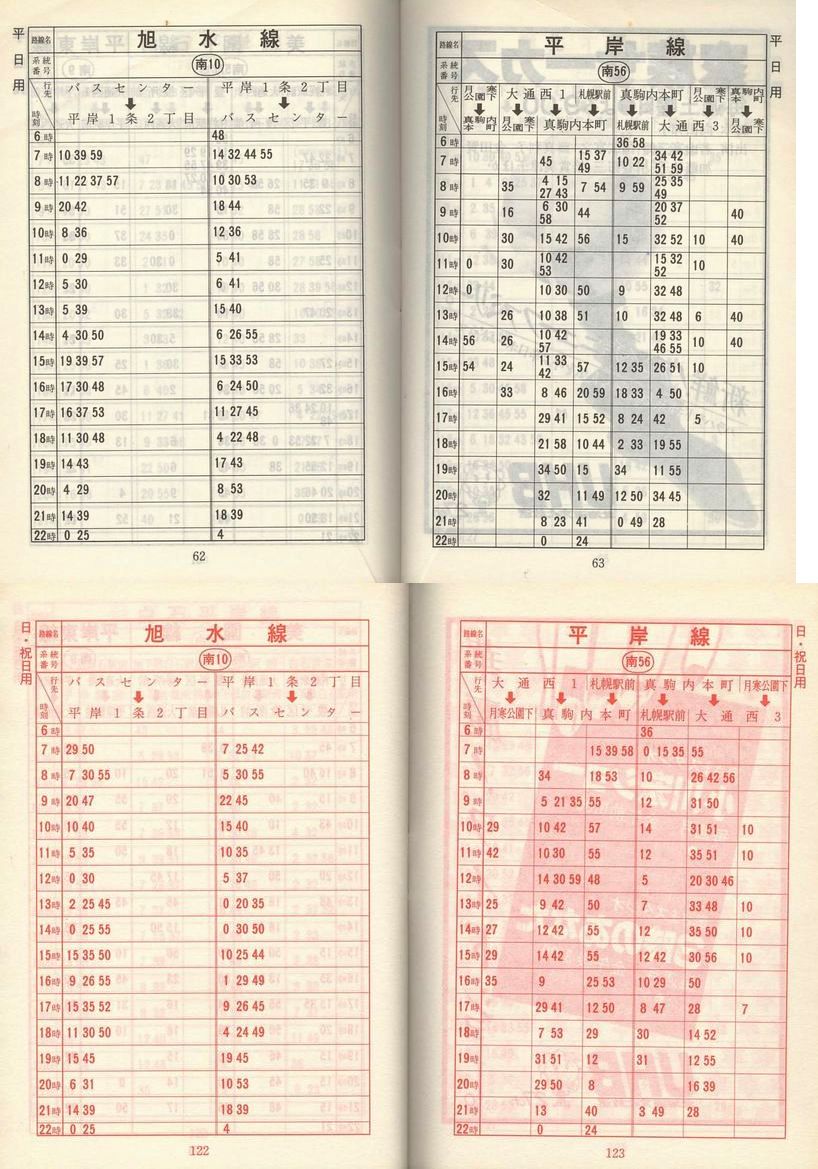 平日用
路線名 旭水線
系統番号 南10
行先 時刻 バスセンター ➡ 平岸1条2丁目 平岸1条2丁目 ➡ バスセンター
6時 48
7時 10 39 59 14 32 44 55
8時 11 22 37 57 10 30 53
9時 20 42 18 44
10時 8 36 12 36
11時 0 29 5 41
12時 5 30 6 41
13時 5 39 15 40
14時 4 30 50 6 26 55
15時 19 39 57 15 33 53
16時 17 30 48 6 24 50
17時 16 37 53 11 27 45
18時 11 30 48 4 22 48
19時 14 43 17 43
20時 4 29 8 53
21時 14 39 18 39
22時 0 25 4
62
平日用
路線名 平岸線
系統番号 南56
行先 月寒公園下 大通西1 札幌駅前 真駒内本町 月寒公園下 真駒内本町
時刻 真駒内本町 月寒公園下 真駒内本町 札幌駅前 大通西3 月寒公園下
6時 36 58
7時 45 15 37 49 10 22 34 42 51 59
8時 35 4 15 27 43 7 54 9 59 25 35 49
9時 16 6 30 58 44 20 37 52 40
10時 30 15 42 56 15 32 52 10 40
11時 0 30 10 42 53 15 32 52 10
12時 0 10 30 50 9 32 48
13時 26 10 38 51 10 32 48 6 40
14時 56 26 10 42 57 19 33 46 55 10 40
15時 54 24 11 33 42 57 12 35 26 51 10
16時 33 8 46 20 59 18 33 4 50
17時 29 41 15 52 8 24 42 5
18時 21 58 10 44 2 33 19 55
19時 34 50 15 34 11 55
20時 32 11 49 12 50 34 45
21時 8 23 41 0 49 28
22時 0 24
63
日・祝日用
路線名 旭水線
系統番号 南10
行先 時刻 バスセンター ➡ 平岸1条2丁目 平岸1条2丁目 ➡ バスセンター
6時
7時 29 50 7 25 42
8時 7 30 55 5 30 55
9時 20 47 22 45
10時 10 40 15 40
11時 5 35 10 35
12時 0 30 5 37
13時 2 25 45 0 20 35
14時 0 25 55 0 30 50
15時 15 35 50 10 25 44
16時 9 26 55 1 29 49
17時 15 35 52 9 26 45
18時 11 30 50 4 24 49
19時 15 45 19 45
20時 6 31 10 53
21時 14 39 18 39
22時 0 25 4
122
日・祝日用
路線名 平岸線
系統番号 南56
行先 大通西1 札幌駅前 真駒内本町 月寒公園下
時刻 月寒公園下 真駒内本町 札幌駅前 大通西3
6時 36
7時 15 39 58 0 15 35 55
8時 34 18 53 10 26 42 56
9時 5 21 35 55 12 31 50
10時 29 10 42 57 14 31 51 10
11時 42 10 30 55 12 35 51 10
12時 14 30 59 48 5 20 30 46
13時 25 9 42 50 7 33 48 10
14時 27 12 42 55 12 35 50 10
15時 29 14 42 55 12 42 30 56 10
16時 35 9 25 53 10 29 50
17時 29 41 12 50 8 47 28 7
18時 7 53 29 30 14 52
19時 31 51 12 31 12 55
20時 29 50 8 16 39
21時 13 40 3 49 28
22時 0 24
123